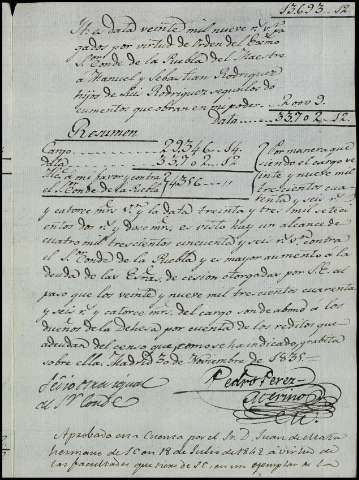 13.693.. 12
Ytt. data veinte mil nueve rs. pa
gados por virtud de orden del Exmo
Sor. Conde de la Puebla del Maestre
a Manuel y Sebastian Rodriguez
hijos de Luis Rodriguez segun los do
cumentos que obran en mi poder. 20..009..
Data 33.702.. 12.
Resumen
Cargo 29.346.. 14.
Data 33.702.. 12.
Alce. a mi favor y contra
el Sr. Conde de la Puebla 4356
Por manera que
siendo el cargo ve
inte y nueve mil
trescientos cuaren
ta y seis rs.
y catorce mrs. vn. y la data treinta y tres mil setecien
tos dos rs. y doce mrs. es visto hay un alcance de
cuatro mil trescientos cincuenta y seis rs. contra
el Sr. Conde de la Puebla y es mayor aumento a la
deuda de las Escras. de cesion otorgadas por S.E. al
paso que los veinte y nueve mil trescientos cuarenta
y seis rs. y catorce mrs. del cargo son de abono a los
dueños de la Dehesa por cuenta de los reditos que
adeudan del censo que como se ha indicado, gravita
sobre ella. Madrid 30 de Noviembre de 1835=
Se dio otra igual
al Sr. Conde
Pedro Perez
Merino
Aprobada esta Cuenta por el Sr. D. Juan de Mata
hermano de SC en 18 de Julio de 1842 a virtud de
las facultades que tiene de SC. en un ejemplar de la